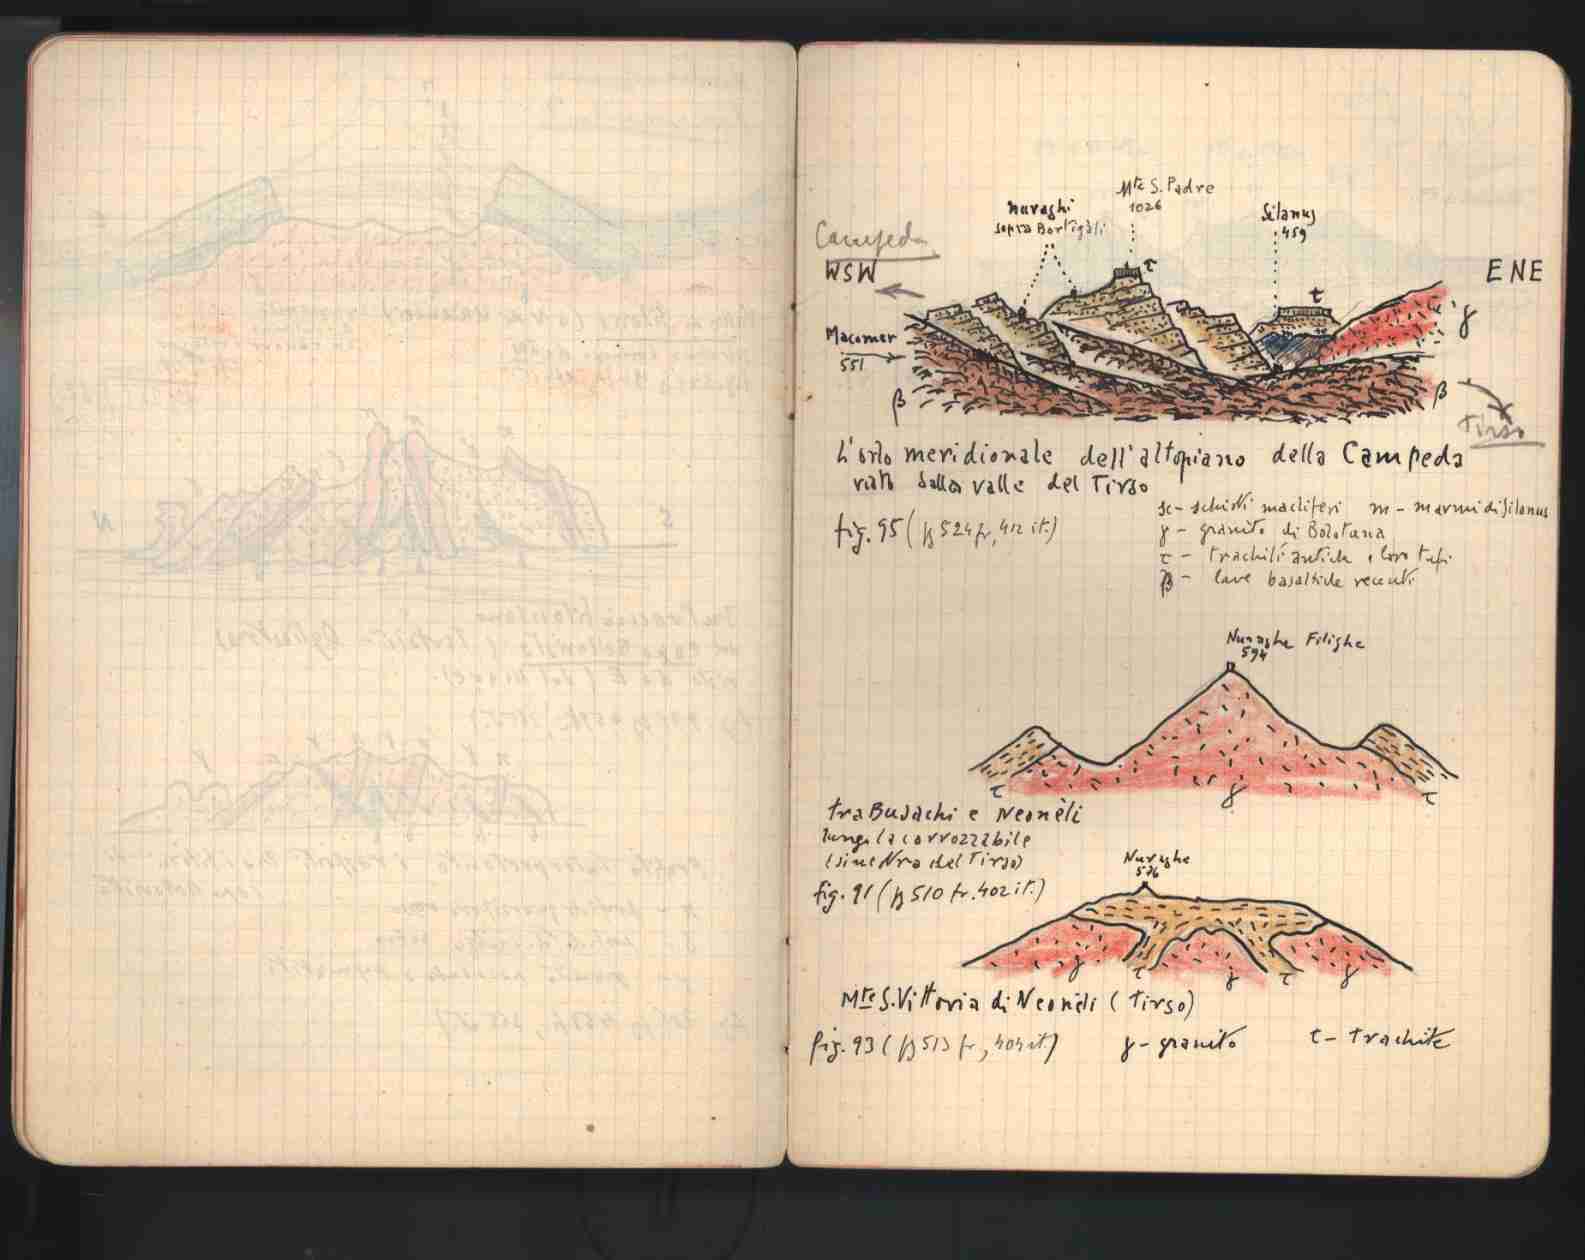 Mte S. Padre
1026
nuraghi
sopra Bortigáli
Silanus
459
Campeda
WSW
ENE
τ
τ
γ
Macomer
551
β
β
Tirso
L'orlo meridionale dell'altopiano della Campeda
visto dalla valle del Tirso
sc - schisti macliferi m - marmi di Silanus
fig. 95 (pg 524 fr, 412 it.)
γ - granito di Bolotana
τ - trachiti antiche e loro tufi
β - lave basaltiche recenti
Nuraghe Filighe
594
τ
γ
τ
tra Busachi e Neonèli
lungo la carrozzabile
(sinistra del Tirso)
fig. 91 (pg 510 fr. 402 it.)
Nuraghe
526
γ
τ
γ
τ
γ
Mte S. Vittoria di Neonèli (Tirso)
fig. 93 (pg 513 fr, 404 it)
γ - granito
τ - trachite